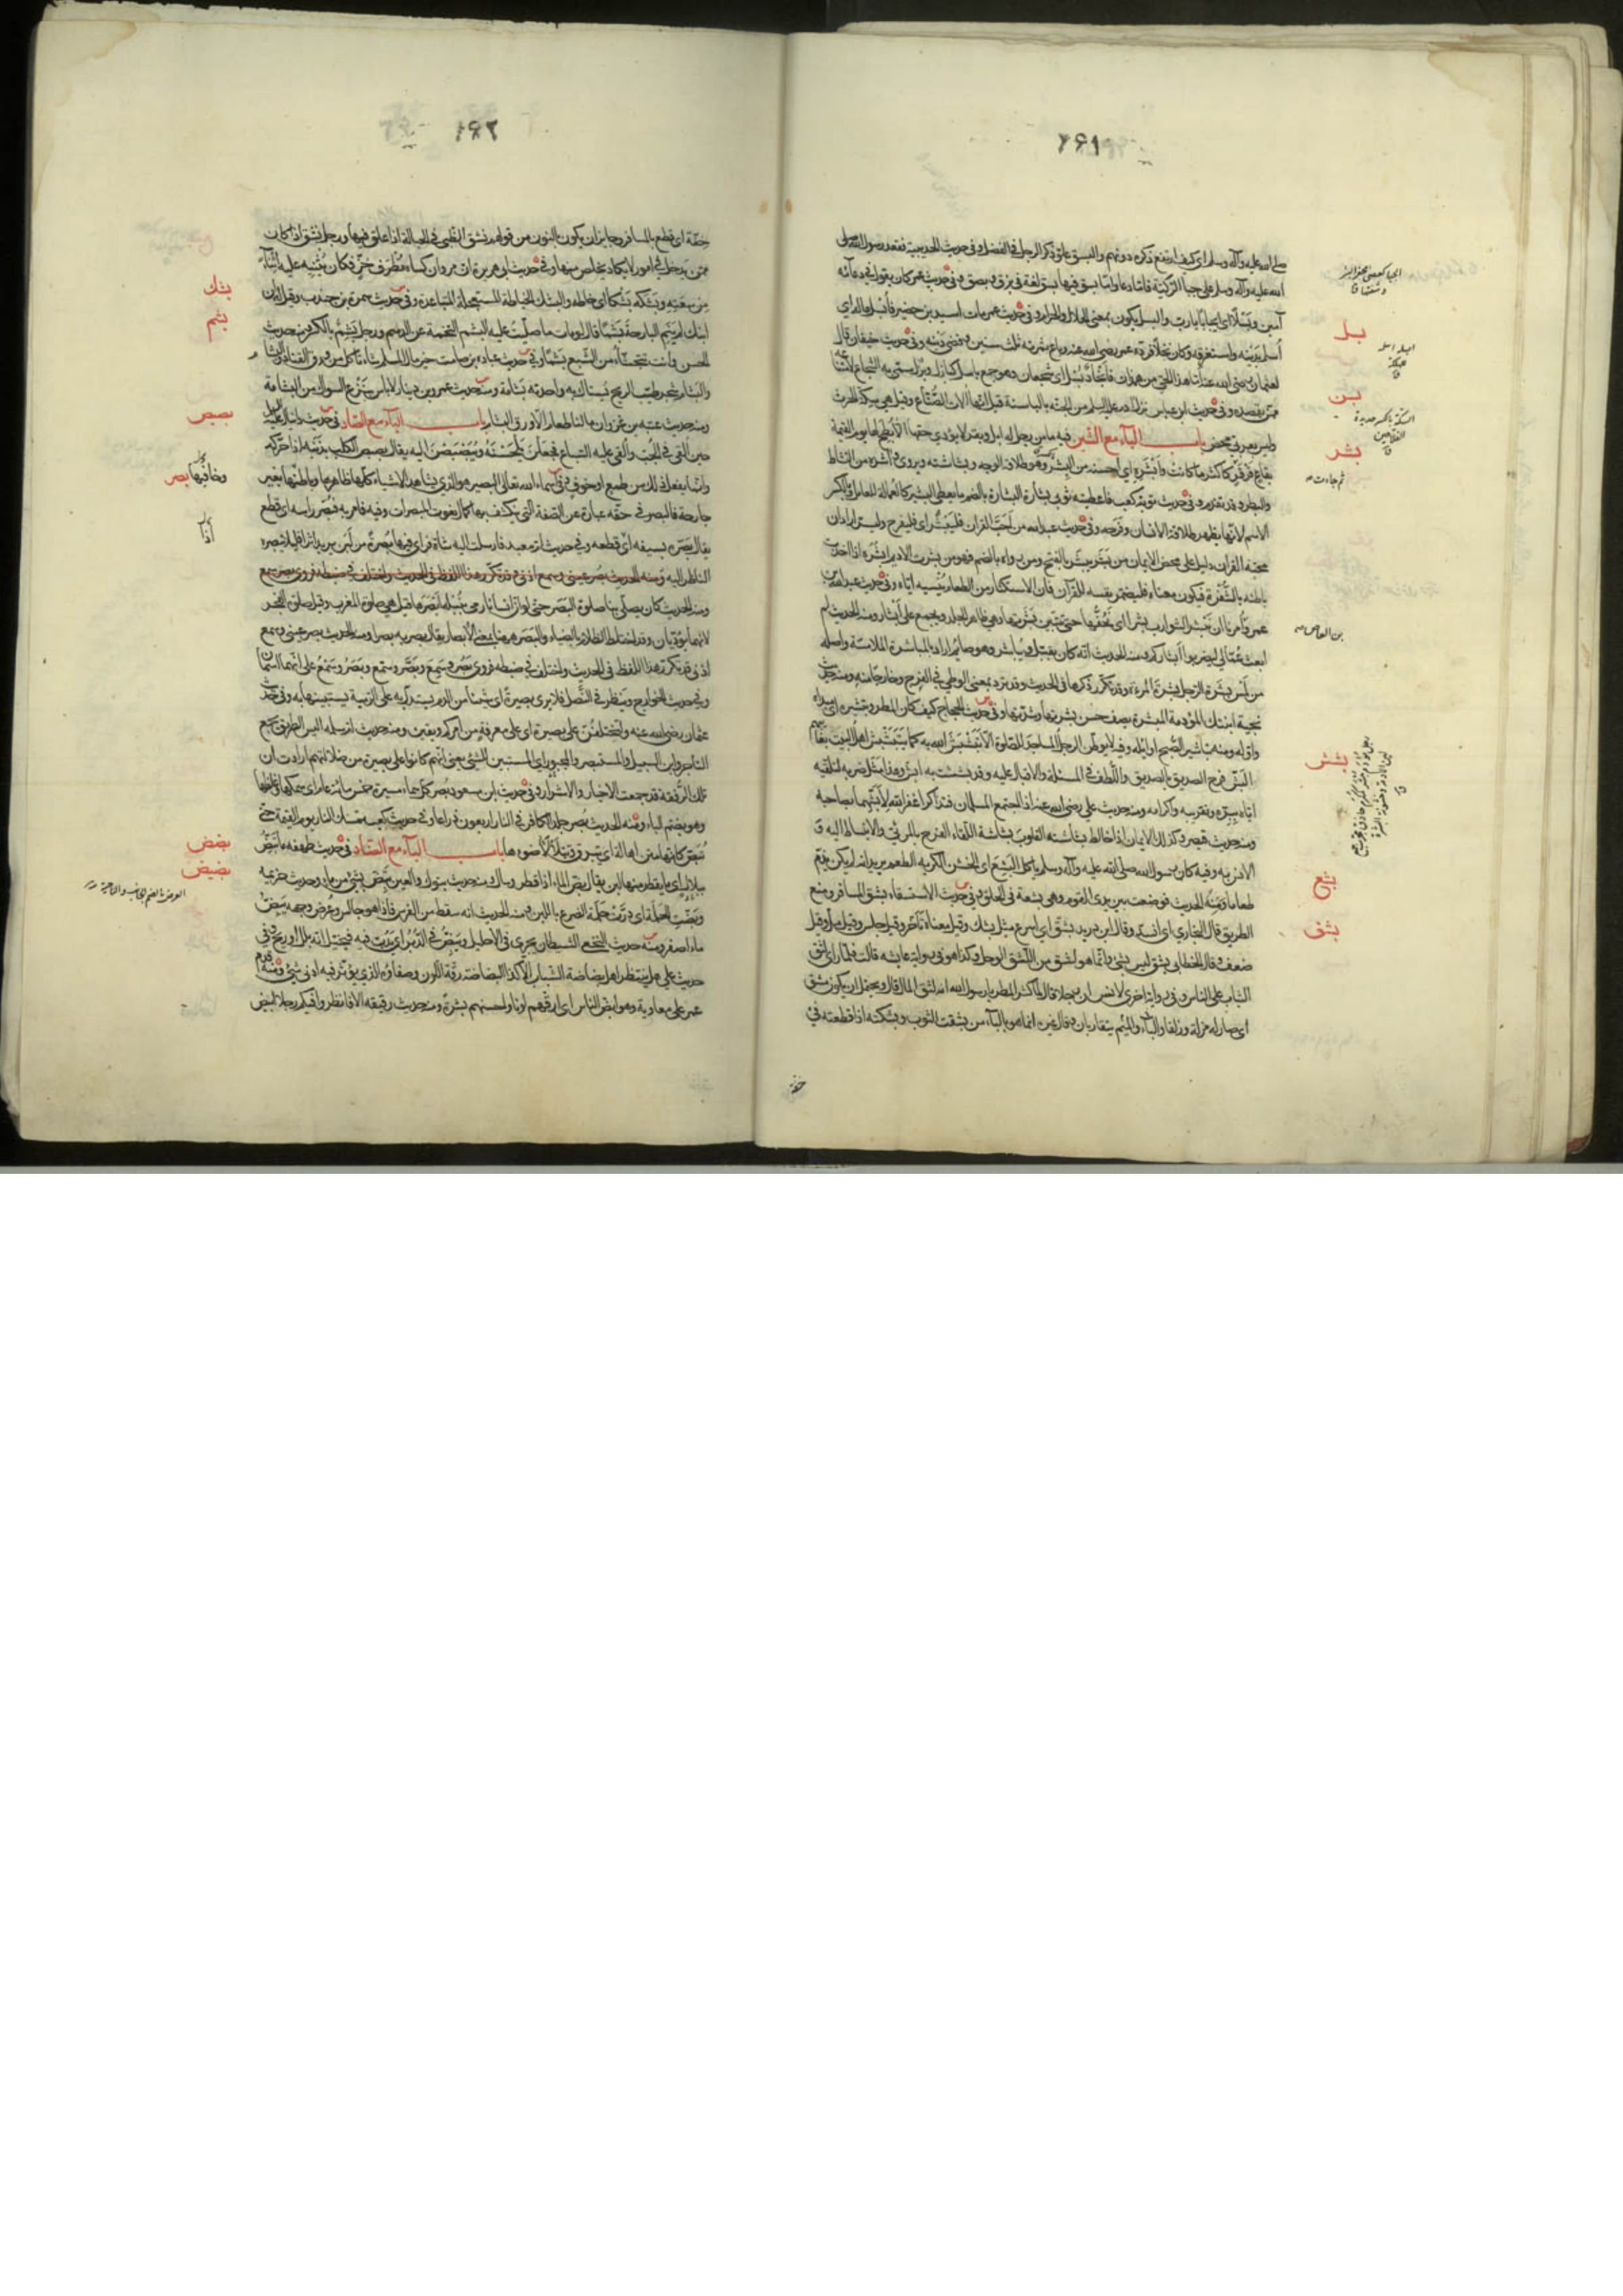 ٢٦١
صلى الله عليه وآله وسلم اي كيف ارتفع ذكره دونهم والبسق علو ذكر الرجل في الفضل وفي حديث الحديبية فقعد رسول الله صلى
الله عليه وآله وسلم على جبا الركية فاما دعا واما بسق فيها بسق لغة في بزق وبصق وفي حديث عمر كان يقول في دعائه
آمين وبسلا اي ايجابا يا رب والبسل يكون بمعنى الحلال والحرام وفي حديث عمر مات اسيد بن حضير فابسل ماله اي
اسلم بدينه واستغرقه وكان نخلا فرده عمر رضي الله عنه وباع ثمرته ثلث سنين وقضى دينه وفي حديث خيفان قال
لعثمان رضي الله عنه اما هذا الحي من همدان فانجاد بسل اي شجعان وهو جمع باسل كبازل وبزل سمي به الشجاع لامتناعه
ممن يقصده وفي حديث ابن عباس نزل آدم عليه السلم من الجنة بالباسنة قيل انها آلات الصناع وقيل هي سكة الحرث
وليس بعربي محض باب الباء مع الشين فيه ما من رجل له ابل وبقر لا يؤدي حقها الا بطح لها يوم القيمة
بقاع قرقر كاكثر ما كانت وابشره اي احسنه من البشر وهو طلاقة الوجه وبشاشته ويروى وآشره من النشاط
والبطر وقد تقدم وفي حديث توبة كعب فاعطيته ثوبي بشارة البشارة بالضم ما يعطى البشير كالعمالة للعامل وبالكسر
الاسم لانها يظهر طلاقة الانسان وفرحه وفي حديث عبد الله من احب القرآن فليبشر اي فليفرح وليسر اراد ان
محبة القرآن دليل على محض الايمان من بشر يبشر بالفتح ومن رواه بالضم فهو من بشرت الاديم ابشره اذا اخذت
باطنه بالشفرة فيكون معناه فليضمر نفسه للقرآن فان الاستكثار من الطعام ينسيه اياه وفي حديث عبد الله بن
عمرو امرنا ان نبشر الشوارب بشرا اي نحفيها حتى تتبين بشرتها وهي ظاهر الجلد ويجمع على ابشار ومنه الحديث لم
ابعث عمالي ليضربوا ابشاركم ومنه الحديث انه كان يقبل ويباشر وهو صائم اراد بالمباشرة الملامسة واصله
من لمس بشرة الرجل بشرة المرءة وقد تكرر ذكرها في الحديث وقد ترد بمعنى الوطي في الفرج وخارجا منه ومنه حديث
نجية ابنتك المؤدمة المبشرة يصف حسن بشرتها وشدتها وفي حديث الحجاج كيف كان المطر وتبشيره اي مبداه
واوله ومنه تباشير الصبح اوائله وفيه لا يوطن الرجل المساجد للصلوة الا تبشبش الله به كما يتبشبش اهل البيت بغائبهم
البش فرح الصديق بالصديق واللطف في المسئلة والاقبال عليه وقد بششت به ابش وهذا مثل ضربه لتلقيه
اياه ببره وتقريبه واكرامه ومنه حديث علي رضي الله عنه اذا اجتمع المسلمان فتذاكرا غفر الله لابشهما بصاحبه
ومنه حديث قيصر وكذلك الايمان اذا خالط بشاشته القلوب بشاشة اللقاء الفرح بالمرئي والانبساط اليه و
الانس به وفيه كان رسول الله صلى الله عليه وآله وسلم ياكل البشع اي الخشن الكريه الطعم يريد انه لم يكن يذم
طعاما ومنه الحديث فوضعت بين يدي القوم وهي بشعة في الحلق وفي حديث الاستسقاء بشق المسافر ومنع
الطريق قال البخاري اي انسد وقال ابن دريد بشق اي اسرع مثل بشك وقيل معناه تاخر وقيل حبس وقيل مل وقيل
ضعف وقال الخطابي بشق ليس بشئ وانما هو لثق من اللثق الوحل وكذا هو في رواية عايشة قالت فلما راى لثق
الثياب على الناس وفي رواية اخرى لانس ان رجلا قال لما كثر المطر يا رسول الله انه لثق المال قال ويحتمل ان يكون مشق
اي صار له مزلة وزلقا والباء والميم يتقاربان وقال غيره انما هو بالباء من بشقت الثوب وبشكته اذا قطعته في
خفة
بسل
بسن
بشر
بن العاص
بشش
بشع
بشق
٢٦٢
خفة اي قطع بالمسافر وجايز ان يكون بالنون من قولهم نشق الظبي في الحبالة اذا علق فيها ورجل نشق اذا كان
ممن يدخل في امور لا يكاد يتخلص منها وفي حديث ابي هريرة ان مروان كساه مطرف خز فكان يثنيه عليه اثناء
من سعته وبشكه بشكا اي خاطه والبشك الخياطة المستعجلة المتباعدة وفي حديث سمرة بن جندب وقيل له ان
ابنك لم ينم البارحة بشما قال لو مات ما صليت عليه البشم التخمة عن الدسم ورجل بشم بالكسر ومنه حديث
الحسن وانت تتجشا من الشبع بشما وفي حديث عبادة بن صامت خير مال المسلم شاء تاكل من ورق القتاد والبشام
والبشام شجر طيب الريح يستاك به واحدته بشامة ومنه حديث عمرو بن دينار لا باس بنزع السواك من البشامة
ومنه حديث عتبة بن غزوان ما لنا طعام الا ورق البشام باب الباء مع الصاد في حديث دانيال عليه السلم
حين القي في الجب والقي عليه السباع فجعلن يلحسنه ويبصبصن اليه يقال بصبص الكلب بذنبه اذا حركه
وانما يفعل ذلك من طمع او خوف في اسماء الله تعالى البصير هو الذي يشاهد الاشياء كلها ظاهرها وباطنها بغير
جارحة فالبصر في حقه عبارة عن الصفة التي ينكشف بها كمال نعوت المبصرات وفيه فامر به فبصر راسه اي قطع
يقال بصره بسيفه اي قطعه وفي حديث ام معبد فارسلت اليه شاة فراى فيها بصرة من لبن يريد اثرا قليلا يبصره
الناظر اليه ومنه الحديث بصر عيني وسمع اذني وقد تكرر هذا اللفظ في الحديث واختلف في ضبطه فروي بصر وسمع
ومنه الحديث كان يصلي بنا صلوة البصر حتى لو ان انسانا رمى بنبله ابصرها قيل هي صلوة المغرب وقيل صلوة الفجر
لانهما يؤديان وقد اختلط الظلام بالضياء والبصر ههنا بمعنى الابصار يقال بصر به بصرا ومنه الحديث بصر عيني وسمع
اذني وقد تكرر هذا اللفظ في الحديث واختلف في ضبطه فروي بصر وسمع وبصر وسمع وبصر وسمع على انهما اسمان
وفي حديث الخوارج وينظر في النصل فلا يرى بصيرة اي شيئا من الدم يستدل به على الرمية يستبينها به وفي حديث
عثمان رضي الله عنه ولتختلفن على بصيرة اي على معرفة من امركم ويقين ومنه حديث ام سلمة اليس الطريق يجمع
التاجر وابن السبيل والمستبصر والمجبور اي المستبين للشئ يعني انهم كانوا على بصيرة من ضلالتهم ارادت ان
تلك الرفقة قد جمعت الاخيار والاشرار وفي حديث ابن مسعود بصر كل سماء مسيرة خمس مائة عام اي سمكها وغلظها
وهو بضم الباء ومنه الحديث بصر جلد الكافر في النار اربعون ذراعا وفي حديث كعب تمسك النار يوم القيمة حتى
تبص كانها متن اهالة اي تبرق ويتلألأ ضوءها باب الباء مع الضاد في حديث طهفة ما تبض
ببلال اي ما يقطر منها لبن يقال بض الماء اذا قطر وسال ومنه حديث تبوك والعين تبض بشئ من ماء وحديث خزيمة
وبضت الحلمة اي درت حلمة الضرع باللبن ومنه الحديث انه سقط من الفرس فاذا هو جالس وعرض وجهه يبض
ماء اصفر ومنه حديث النخعي الشيطان يجري في الاحليل ويبض في الدبر اي يدب فيه فيخيل انه بلل او ريح وفي
حديث علي هل ينتظر اهل بضاضة الشباب الا كذا البضاضة رقة اللون وصفاؤه الذي يؤثر فيه ادنى شئ ومنه قدم
عمر على معاوية وهو ابض الناس اي ارقهم لونا واحسنهم بشرة ومنه حديث رقيقة الا فانظروا فيكم رجلا ابيض
بشك
بشم
بصبص
وخافيها بصر
بضض
بضيض